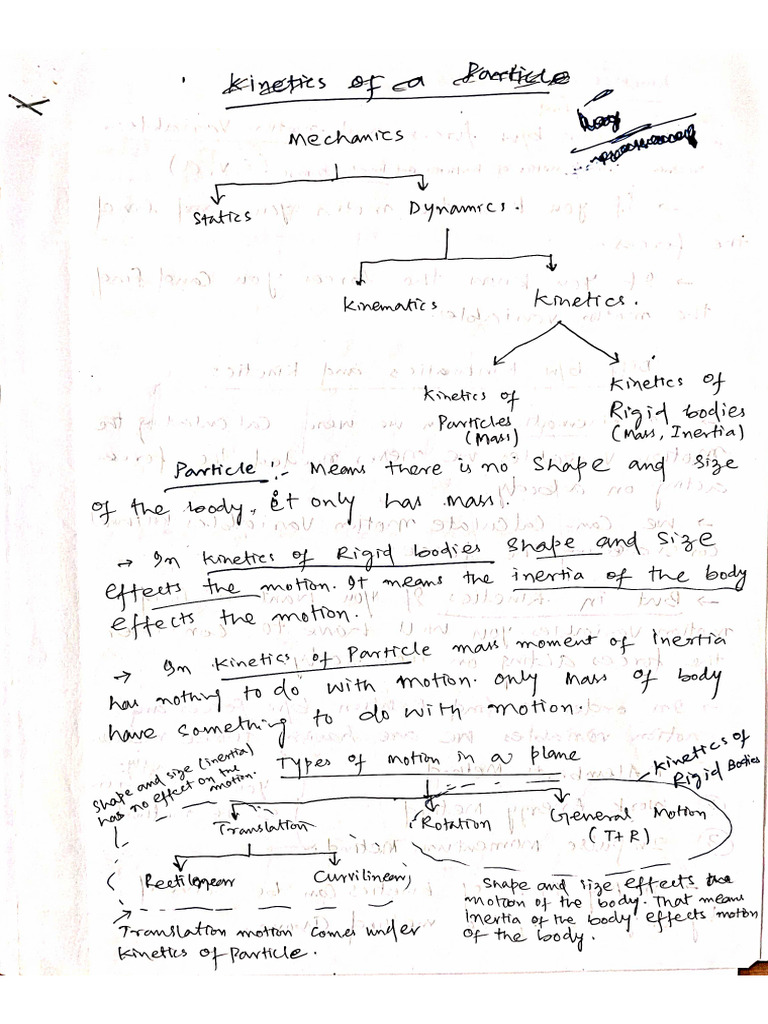 Kinetics of a Particle
Mechanics
Statics
Dynamics.
Kinematics
Kinetics.
Kinetics of
Particles
(Mass)
Kinetics of
Rigid bodies
(Mass, Inertia)
Particle :- Means there is no shape and size
of the body, it only has mass.
→ In Kinetics of Rigid bodies shape and size
effects the motion. It means the inertia of the body
effects the motion.
→ In Kinetics of Particle mass moment of inertia
has nothing to do with motion. only mass of body
have something to do with motion.
Types of motion in a plane
Shape and size (inertia)
has no effect on the
motion.
Kinetics of
Rigid Bodies
Translation
Rotation
General Motion
(T+R)
Rectilinear
Curvilinear
Translation motion comes under
Kinetics of Particle.
Shape and size effects the
motion of the body. That means
inertia of the body effects motion
of the body.